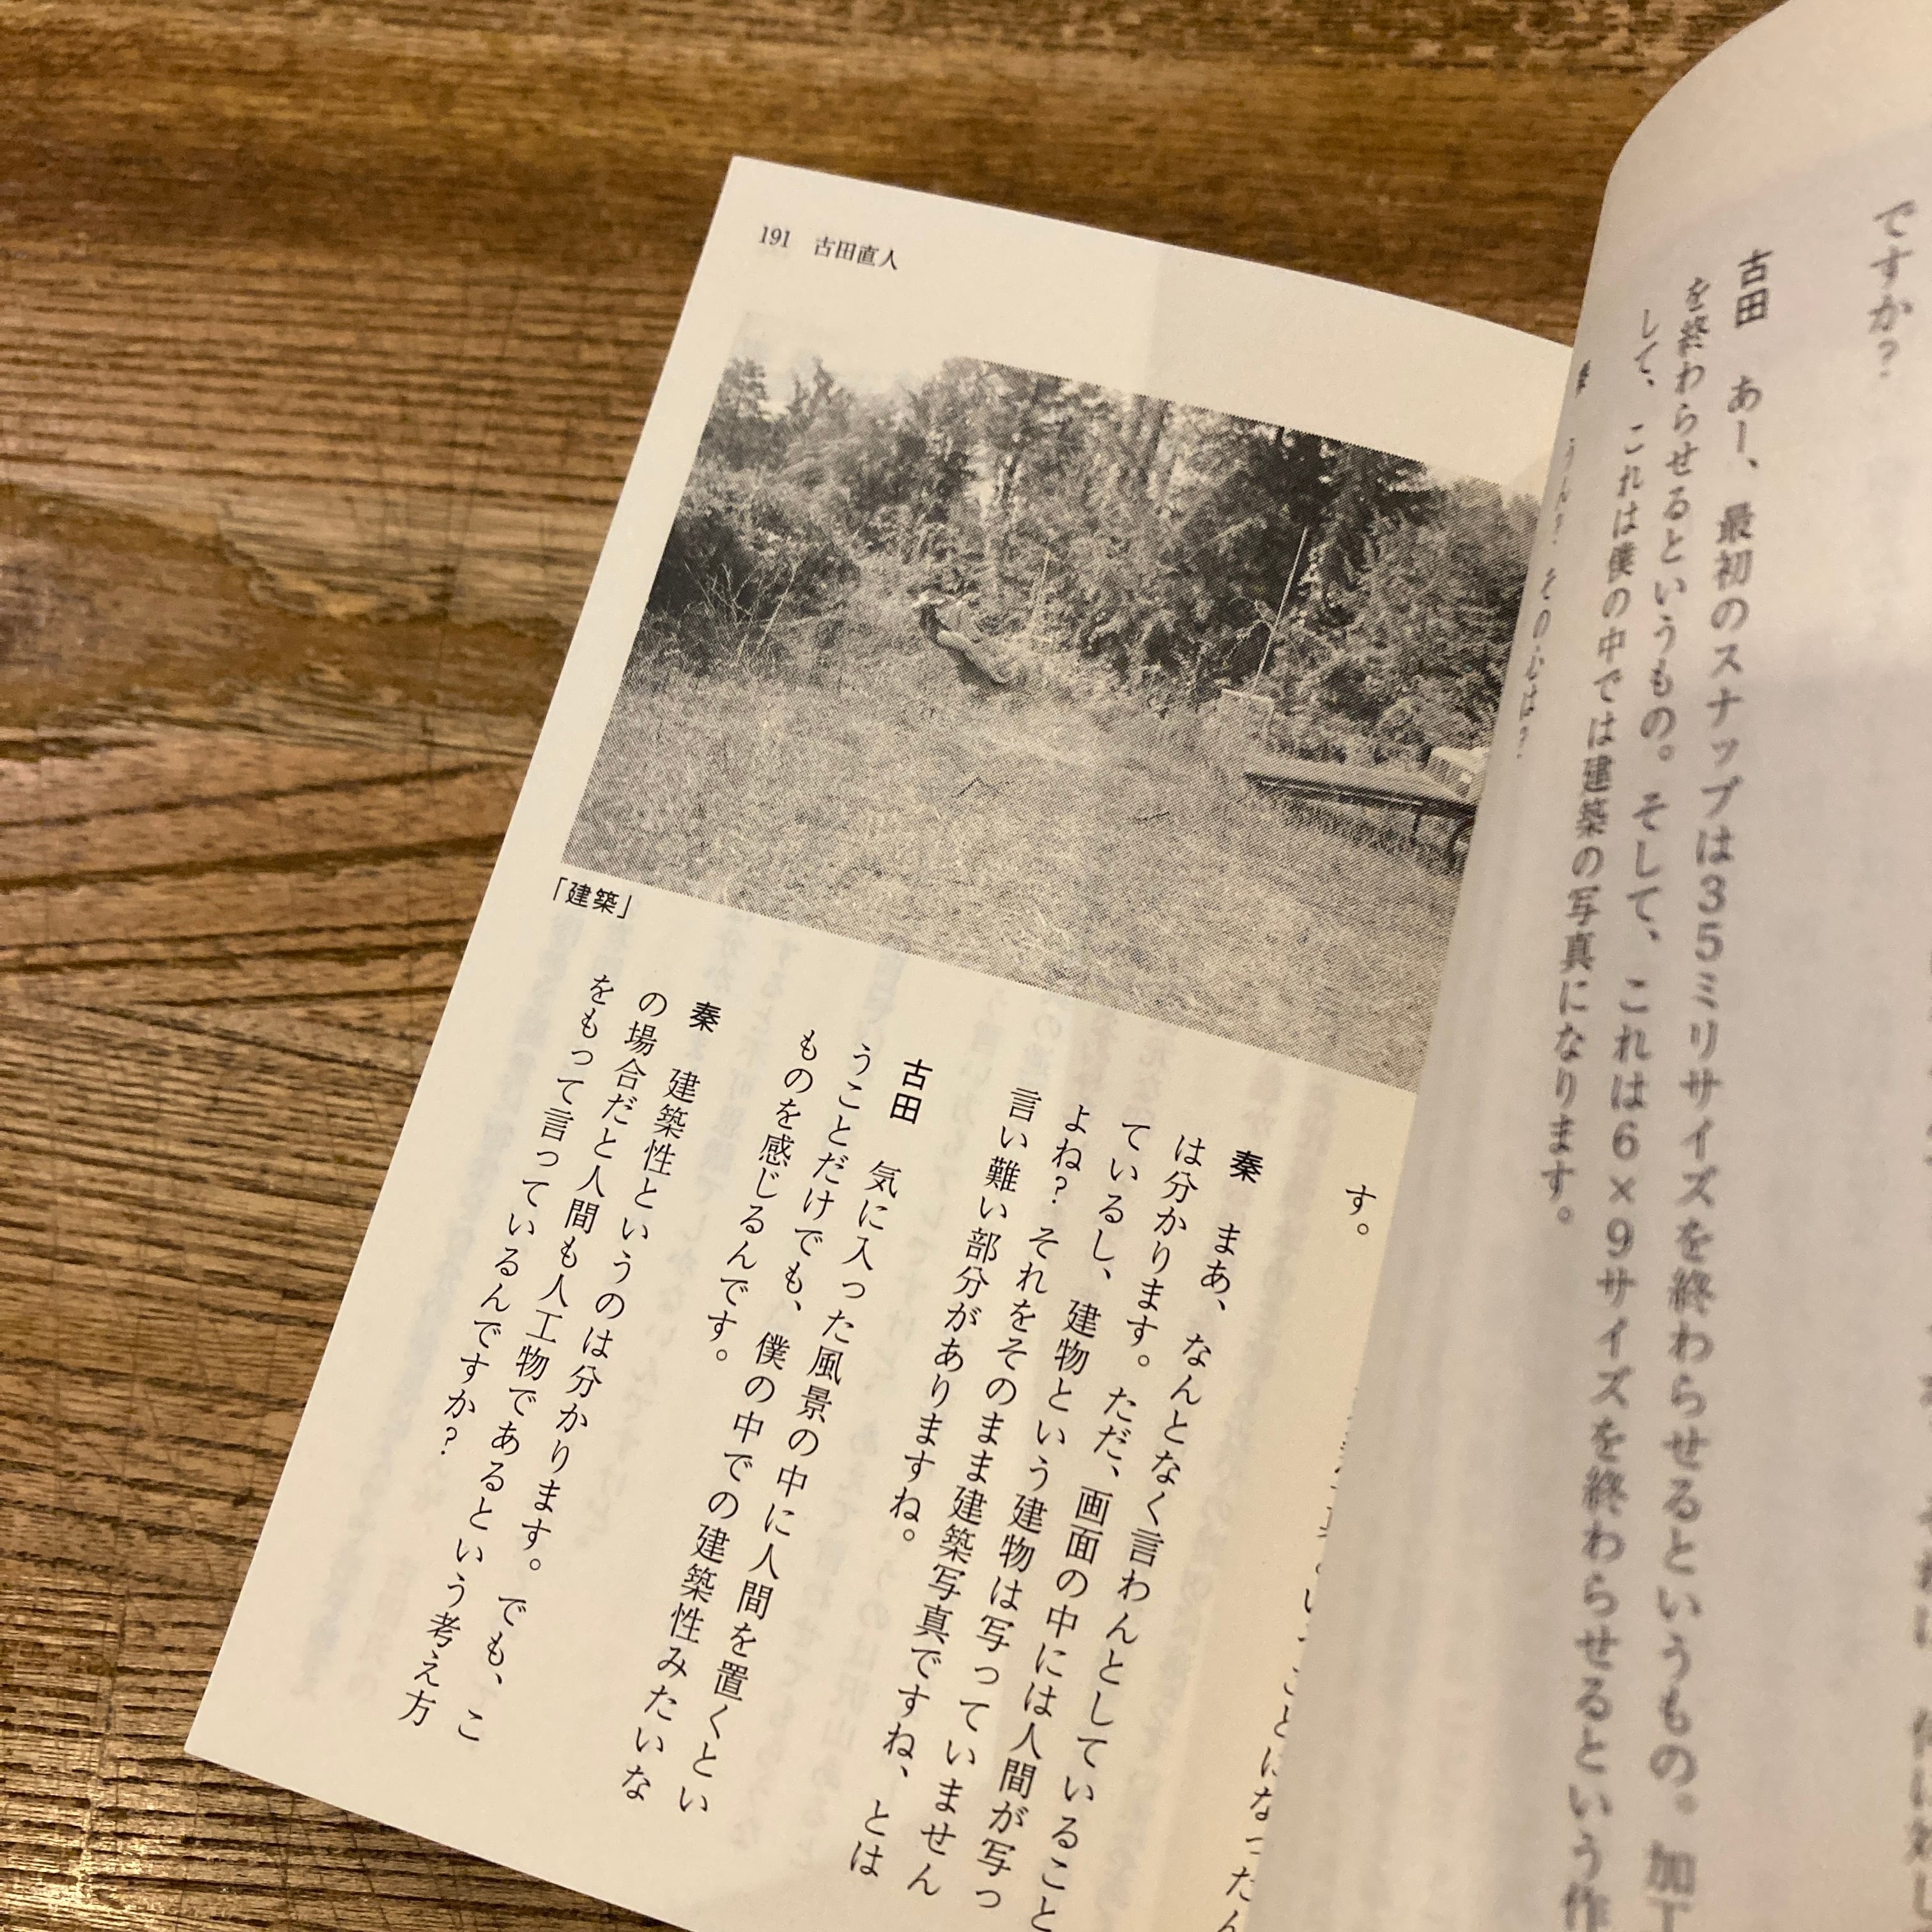 ですか?
古田　あー、最初のスナップは35ミリサイズを終わらせるというもの。加工
を終わらせるというもの。そして、これは6×9サイズを終わらせるという作
して、これは僕の中では建築の写真になります。
うん? その心は?
191　古田直人
「建築」
す。
秦　まあ、なんとなく言わんとしていること
は分かります。ただ、画面の中には人間が写っ
ているし、建物という建物は写っていません
よね? それをそのまま建築写真ですね、とは
言い難い部分がありますね。
古田　気に入った風景の中に人間を置くとい
うことだけでも、僕の中での建築性みたいな
ものを感じるんです。
秦　建築性というのは分かります。でも、こ
の場合だと人間も人工物であるという考え方
をもって言っているんですか?